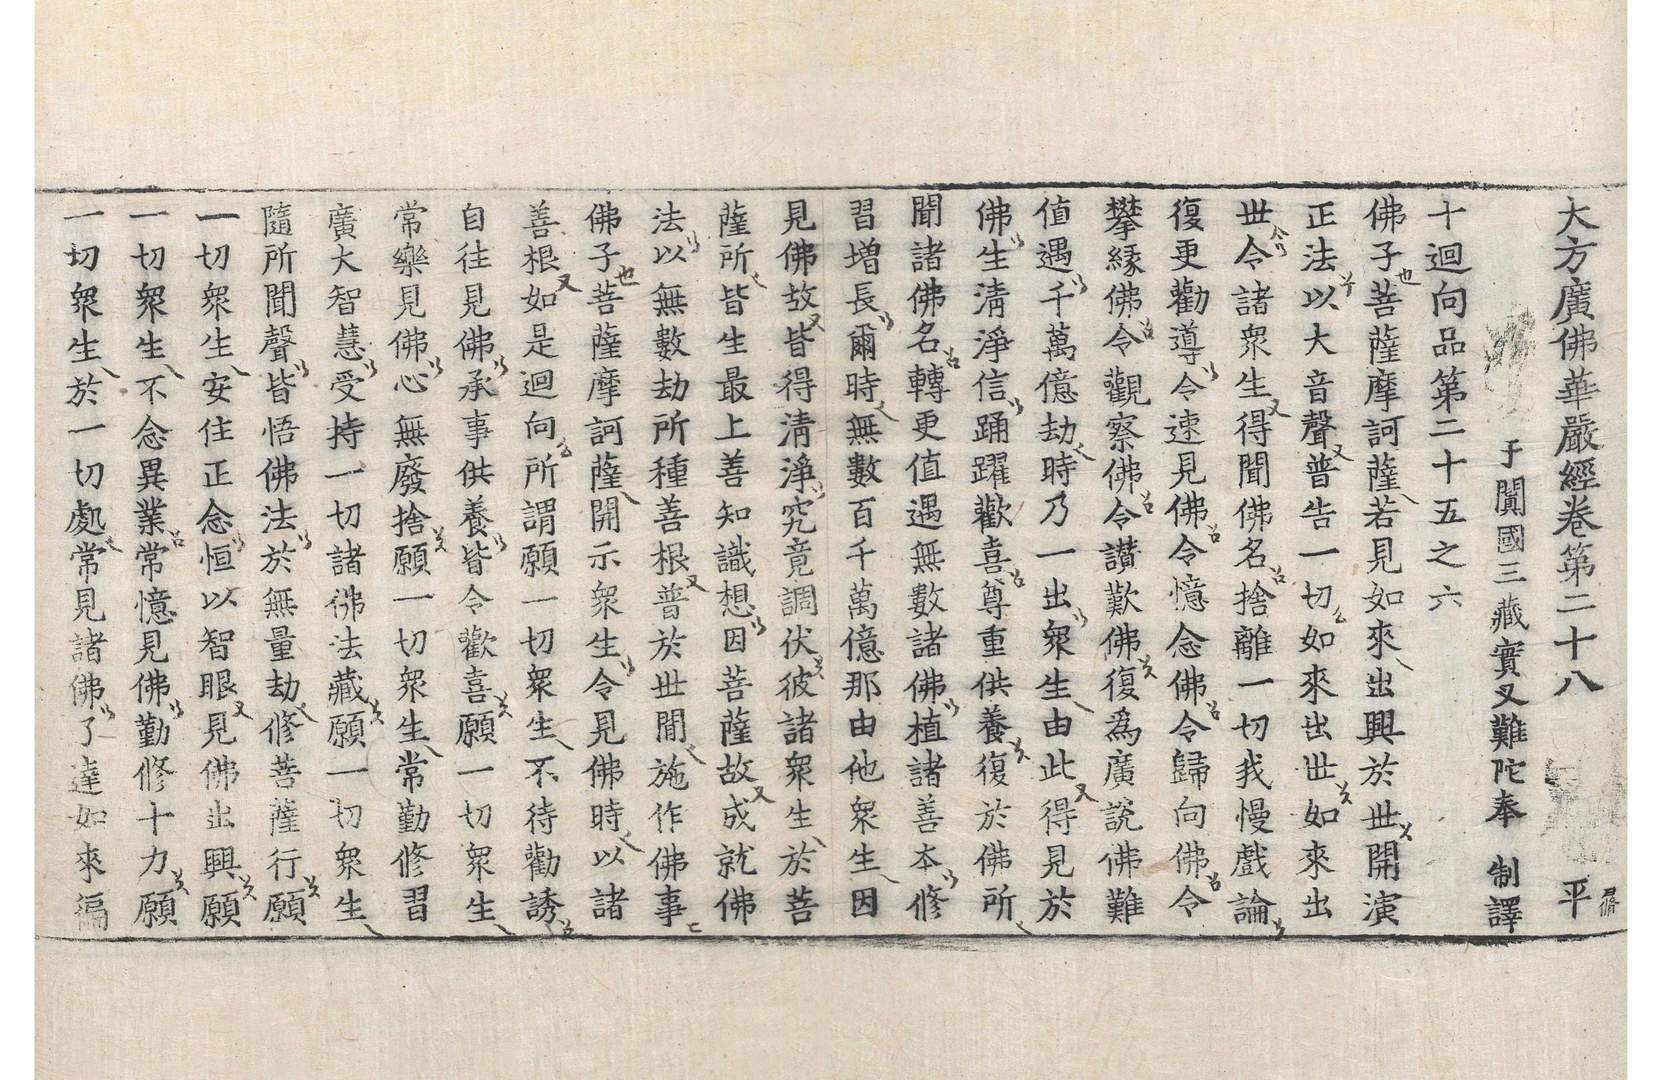 大方廣佛華嚴經卷第二十八　平
于闐國三藏實叉難陀奉　制譯
十迴向品第二十五之六
佛子菩薩摩訶薩若見如來出興於世開演
正法以大音聲普告一切如來出世如來出
世令諸衆生得聞佛名捨離一切我慢戲論
復更勸導令速見佛令憶念佛令歸向佛令
攀緣佛令觀察佛令讃歎佛復爲廣說佛難
值遇千萬億劫時乃一出衆生由此得見於
佛生淸淨信踊躍歡喜尊重供養復於佛所
聞諸佛名轉更值遇無數諸佛植諸善本修
習增長爾時無數百千萬億那由他衆生因
見佛故皆得淸淨究竟調伏彼諸衆生於菩
薩所皆生最上善知識想因菩薩故成就佛
法以無數劫所種善根普於世間施作佛事
佛子菩薩摩訶薩開示衆生令見佛時以諸
善根如是迴向所謂願一切衆生不待勸誘
自往見佛承事供養皆令歡喜願一切衆生
常樂見佛心無廢捨願一切衆生常勤修習
廣大智慧受持一切諸佛法藏願一切衆生
隨所聞聲皆悟佛法於無量劫修菩薩行願
一切衆生安住正念恒以智眼見佛出興願
一切衆生不念異業常憶見佛勤修十力願
一切衆生於一切處常見諸佛了達如來徧